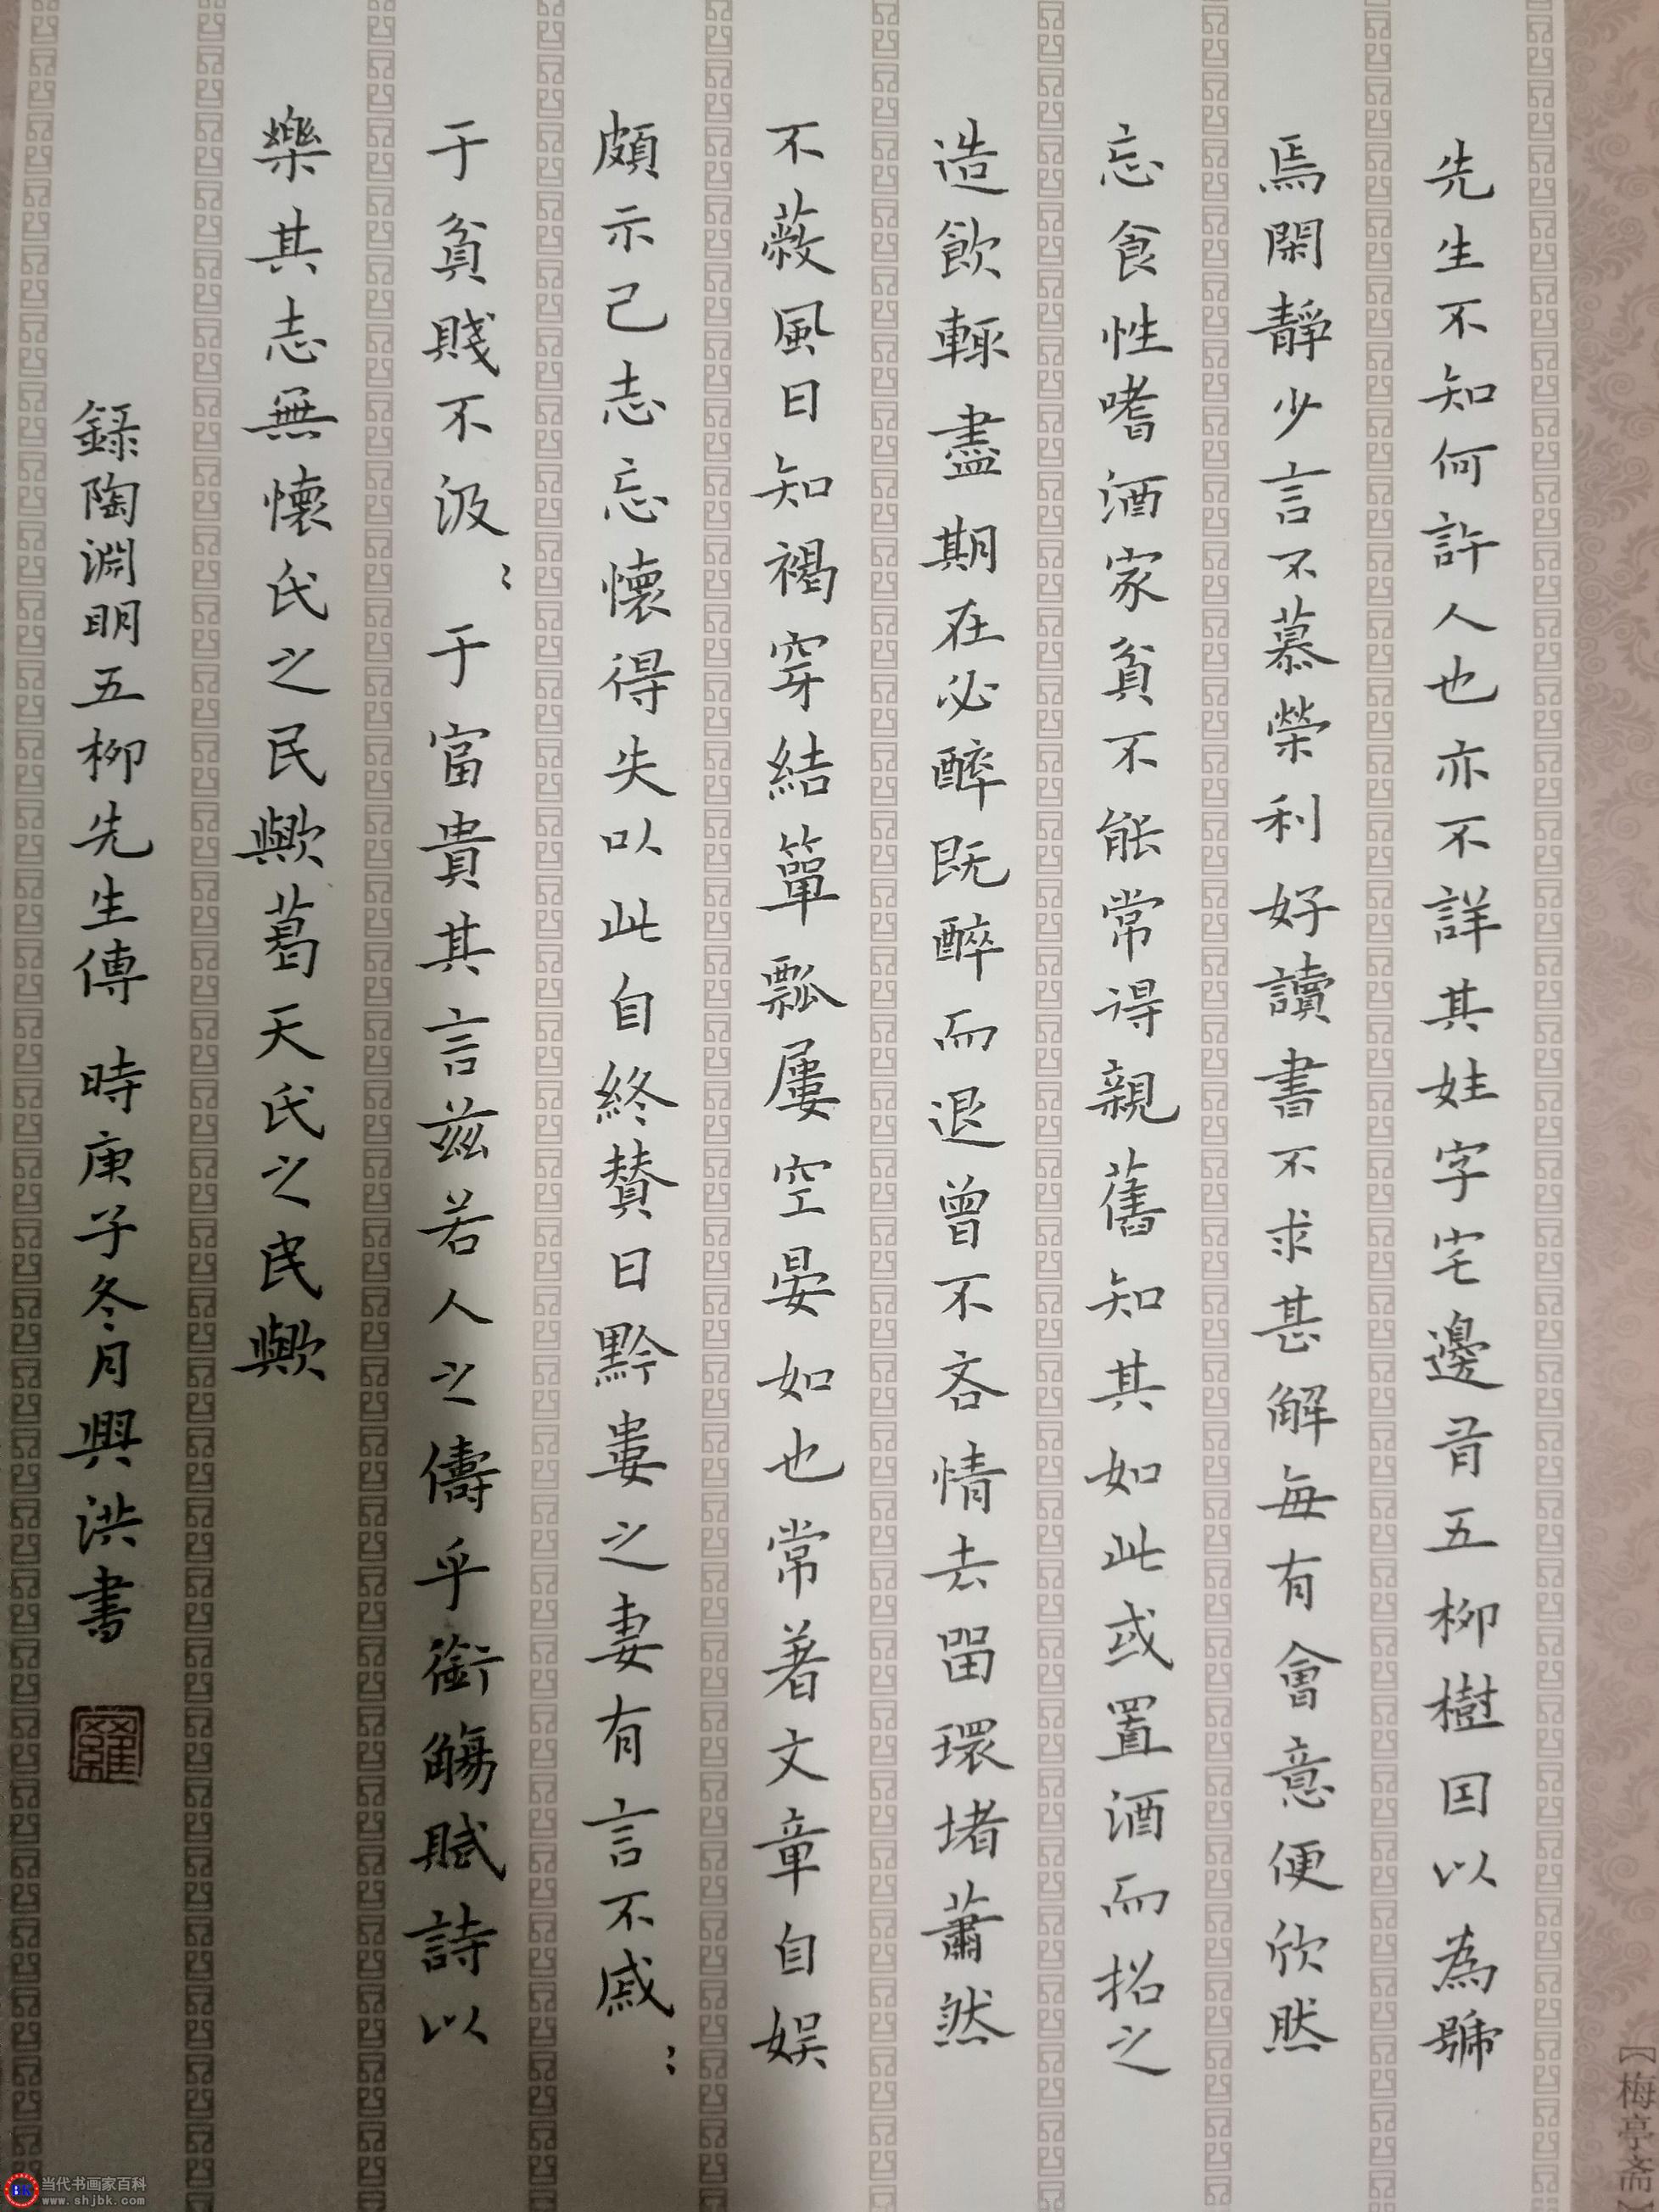 先生不知何許人也亦不詳其姓字宅邊有五柳樹因以為號
焉閑靜少言不慕榮利好讀書不求甚解每有會意便欣然
忘食性嗜酒家貧不能常得親舊知其如此或置酒而招之
造飲輒盡期在必醉既醉而退曾不吝情去留環堵蕭然
不蔽風日短褐穿結簞瓢屢空晏如也常著文章自娛
頗示己志忘懷得失以此自終贊曰黔婁之妻有言不戚〻
于貧賤不汲〻于富貴其言茲若人之儔乎銜觴賦詩以
樂其志無懷氏之民歟葛天氏之民歟
錄陶淵明五柳先生傳 時庚子冬月興洪書
【梅亭斋】
当代书画家百科
www.shjbk.com